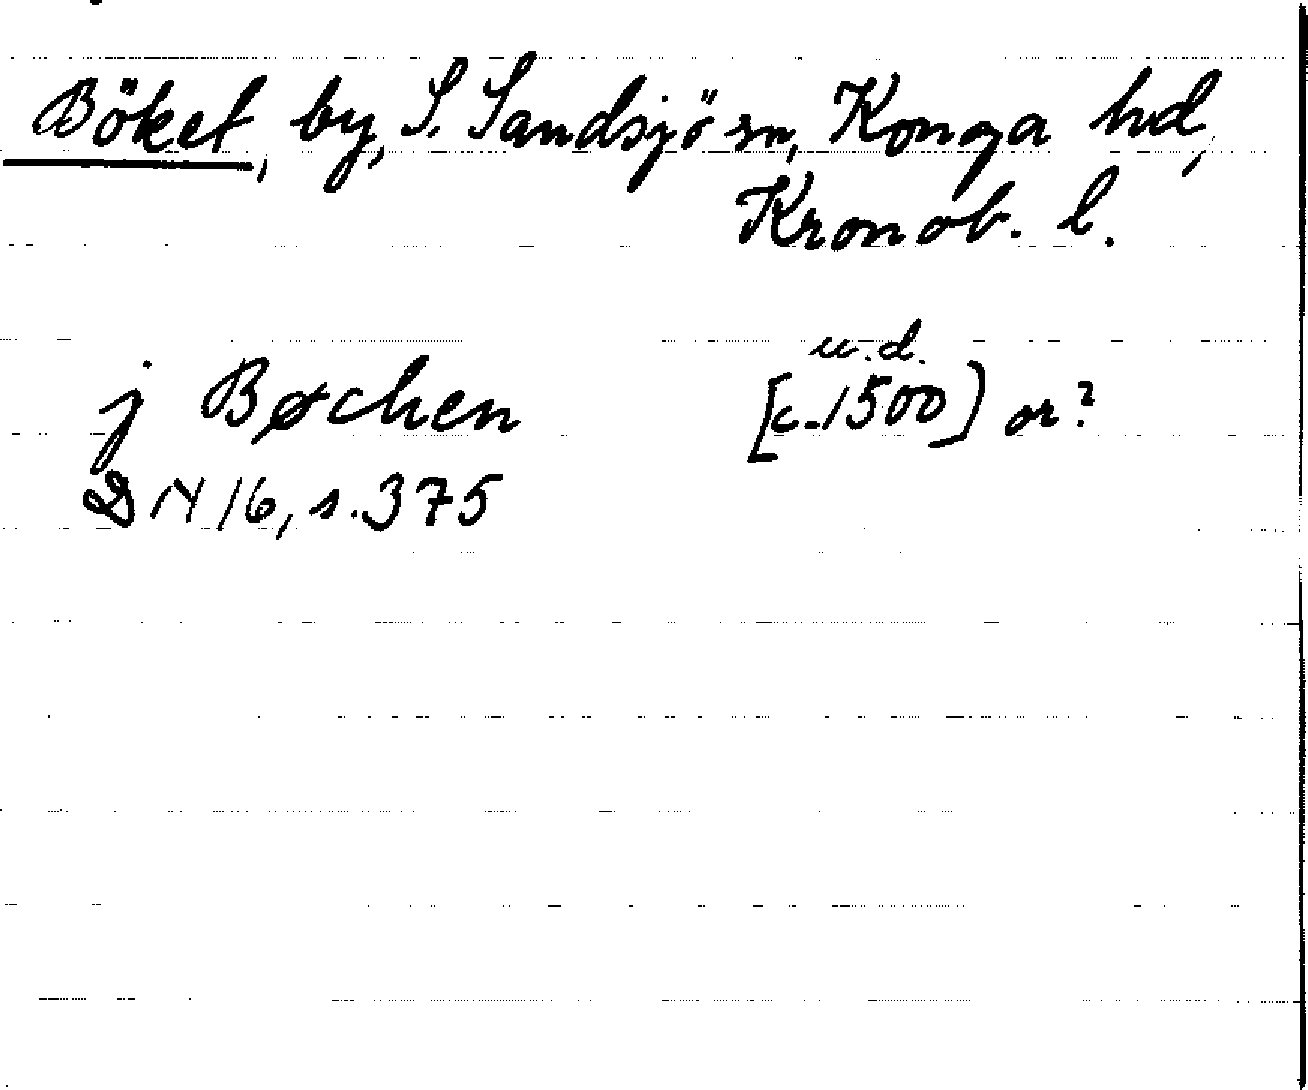 Böket, by, S. Sandsjö sn, Konga hd,
Kronob. l.
u.d.
j Bøchen [c. 1500] or?
DN 16, s. 375